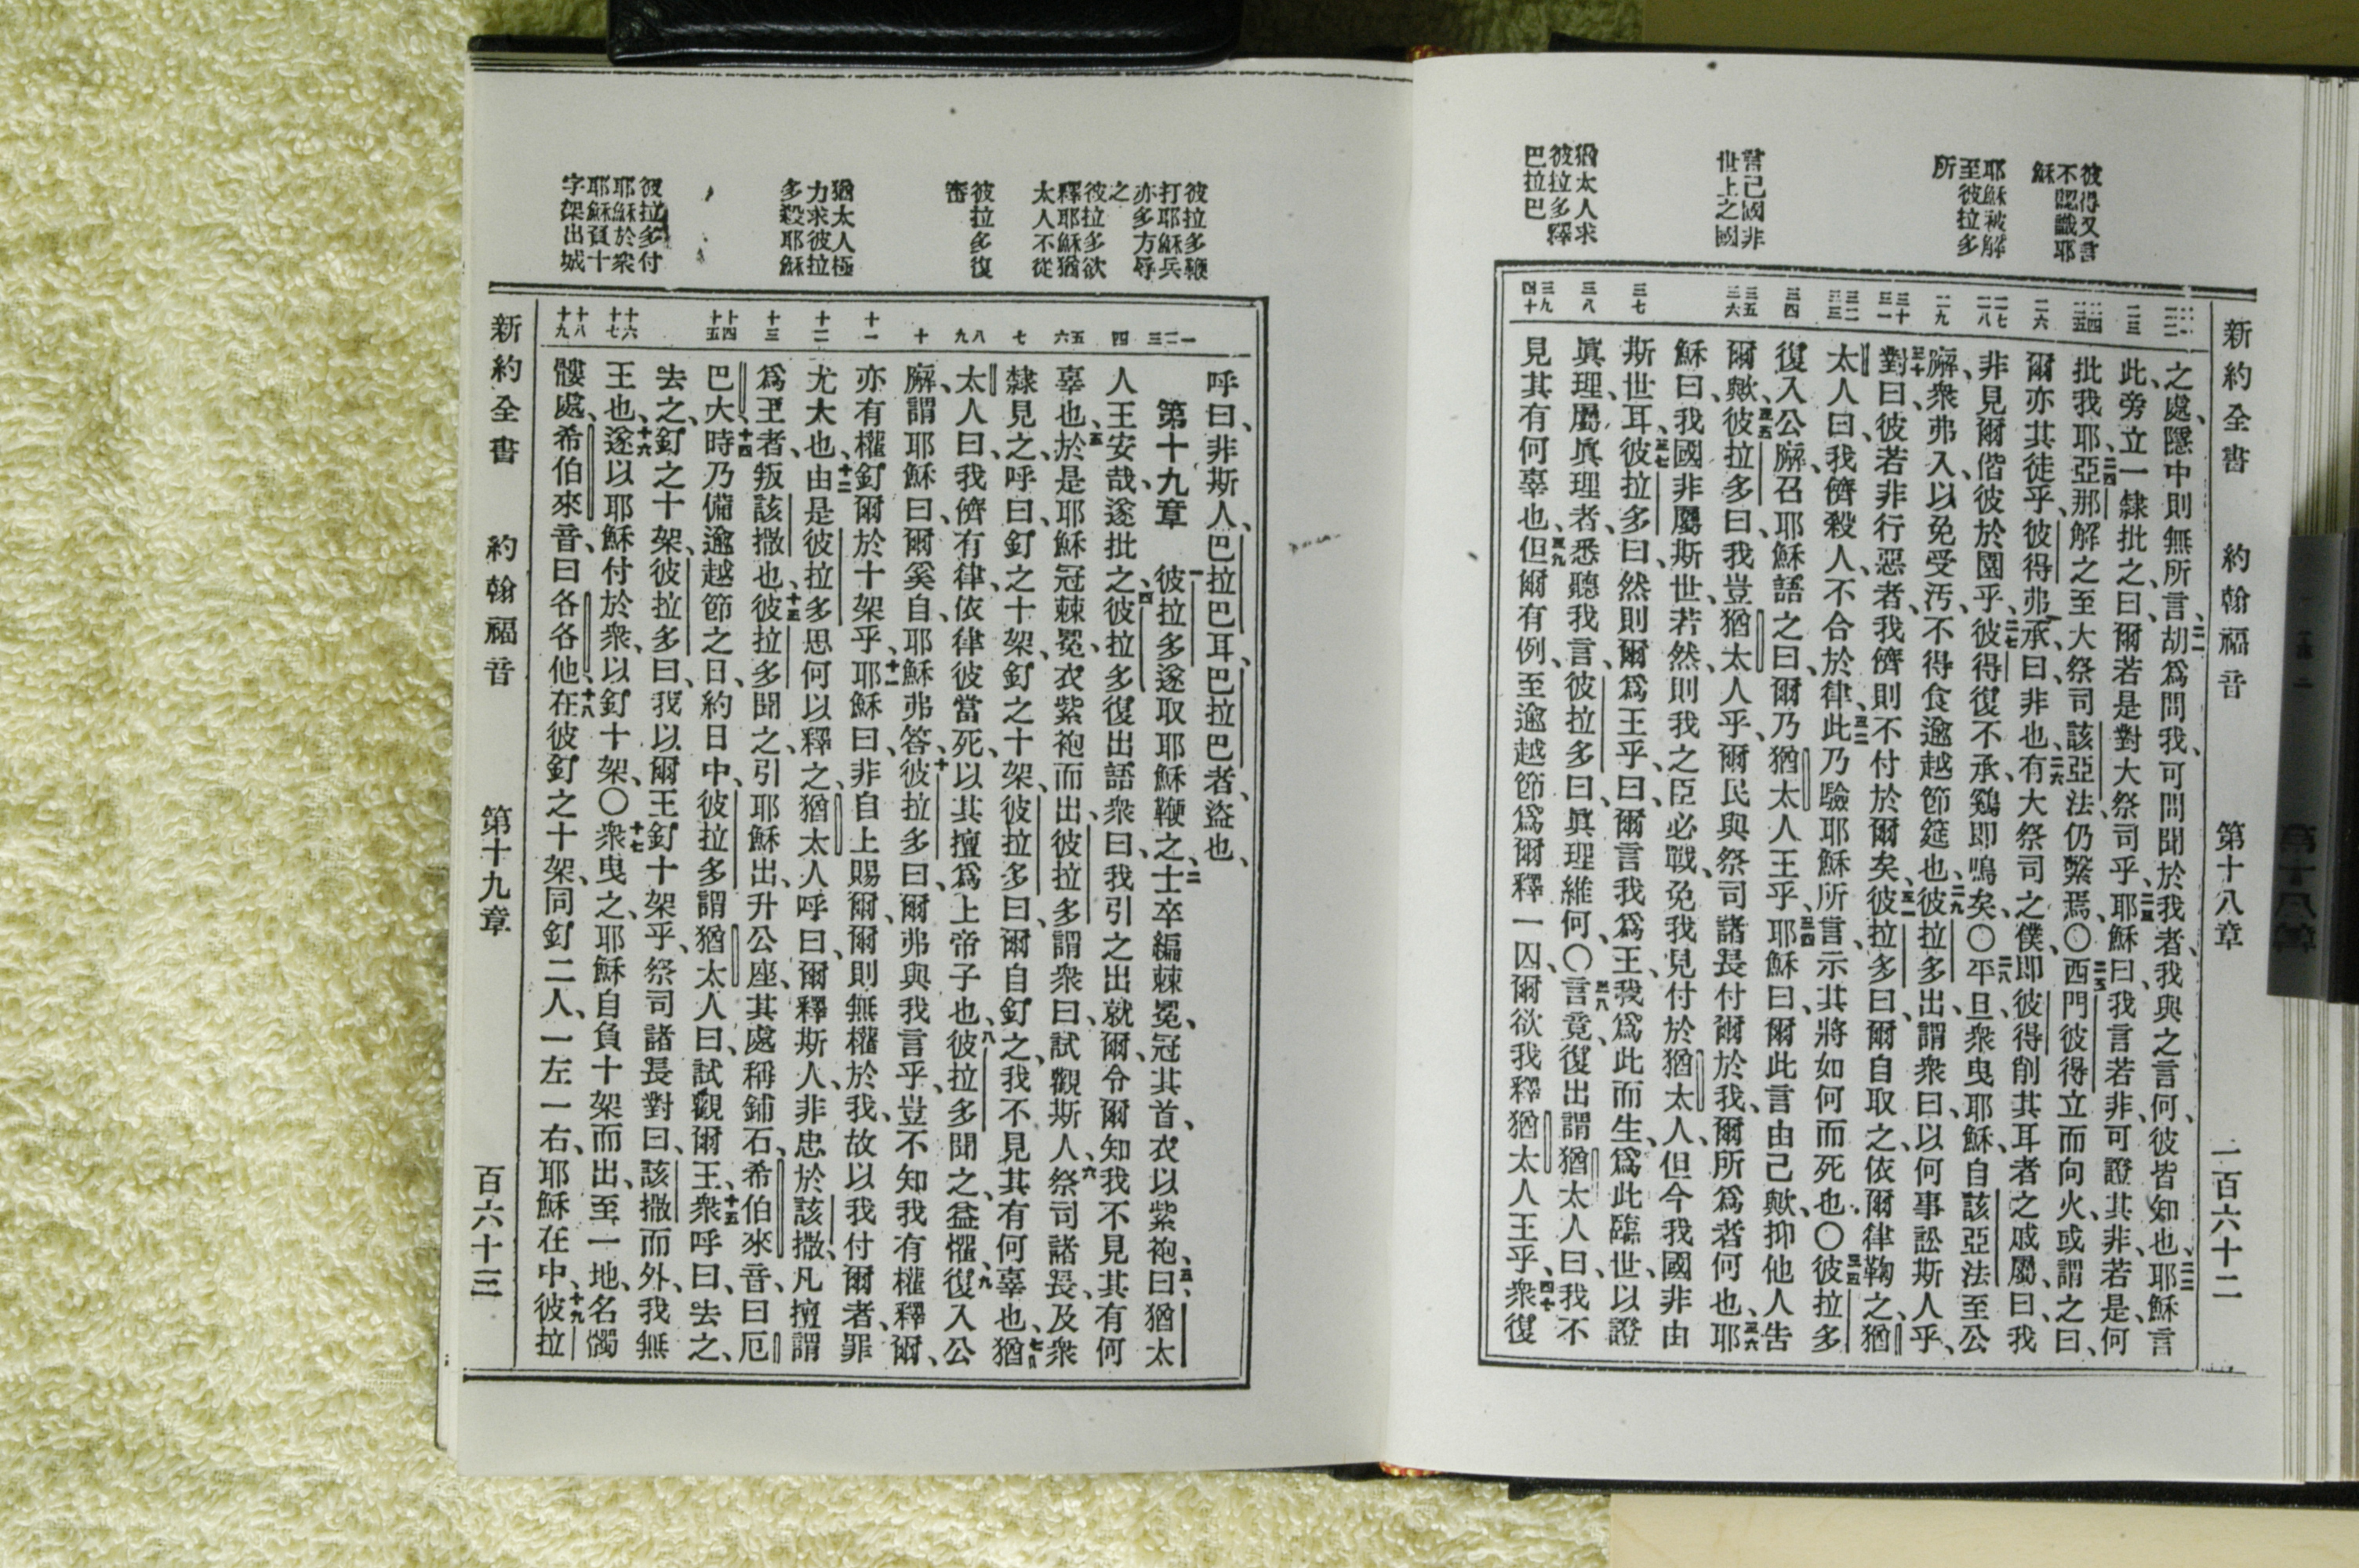 新約全書 約翰福音 第十八章 一百六十二
彼得又言
不認識耶
穌
耶穌被解
至彼拉多
所
言己國非
世上之國
猶太人求
彼拉多釋
巴拉巴
之處、隱中則無所言、二一胡爲問我、可問聞於我者、我與之言何、彼皆知也、二二耶穌言
此、旁立一隸批之、曰、爾若是對大祭司乎、二三耶穌曰、我言若非、可證其非、若是、何
批我耶、二四亞那解之至大祭司該亞法、仍繫焉、〇二五西門彼得立而向火、或謂之曰、
爾亦其徒乎、彼得弗承、曰、非也、二六有大祭司之僕、卽彼得削其耳者之戚屬、曰、我
非見爾偕彼於園乎、二七彼得復不承、鷄卽鳴矣、〇二八平旦、衆曳耶穌、自該亞法至公
廨、衆弗入、以免受污、不得食逾越節筵也、二九彼拉多出、謂衆曰、以何事訟斯人乎、
三十對曰、彼若非行惡者、我儕則不付於爾矣、三一彼拉多曰、爾自取之、依爾律鞫之、猶
太人曰、我儕殺人、不合於律、三二此乃驗耶穌所言、示其將如何而死也、〇三三彼拉多
復入公廨、召耶穌語之曰、爾乃猶太人王乎、三四耶穌曰、爾此言由己歟、抑他人告
爾歟、三五彼拉多曰、我豈猶太人乎、爾民與祭司諸長付爾於我、爾所爲者何也、三六耶
穌曰、我國非屬斯世、若然、則我之臣必戰、免我見付於猶太人、但今我國非由
斯世耳、三七彼拉多曰、然則爾爲王乎、曰、爾言我爲王、我爲此而生、爲此臨世、以證
眞理、屬眞理者、悉聽我言、三八彼拉多曰、眞理維何、〇言竟、復出謂猶太人曰、我不
見其有何辜也、三九但爾有例、至逾越節爲爾釋一囚、爾欲我釋猶太人王乎、四十衆復
彼拉多鞭
打耶穌兵
亦多方辱
之
彼拉多欲
釋耶穌猶
太人不從
彼拉多復
審
猶太人極
力求彼拉
多殺耶穌
彼拉多付
耶穌於衆
耶穌負十
字架出城
呼曰、非斯人、巴拉巴耳、巴拉巴者、盜也、
第十九章 一彼拉多遂取耶穌鞭之、二士卒編棘冕、冠其首、衣以紫袍、三曰、猶太
人王安哉、遂批之、四彼拉多復出語衆曰、我引之出就爾、令爾知我不見其有何
辜也、五於是耶穌冠棘冕、衣紫袍而出、彼拉多謂衆曰、試觀斯人、六祭司諸長、及衆
隸見之、呼曰、釘之十架、釘之十架、彼拉多曰、爾自釘之、我不見其有何辜也、七猶
太人曰、我儕有律、依律彼當死、以其擅爲上帝子也、八彼拉多聞之、益懼、九復入公
廨、謂耶穌曰、爾奚自、耶穌弗答、十彼拉多曰、爾弗與我言乎、豈不知我有權釋爾、
亦有權釘爾於十架乎、十一耶穌曰、非自上賜爾、爾則無權於我、故以我付爾者、罪
尤大也、十二由是彼拉多思何以釋之、猶太人呼曰、爾釋斯人、非忠於該撒、凡擅謂
爲王者、叛該撒也、十三彼拉多聞之、引耶穌出、升公座、其處稱鋪石、希伯來音、曰厄
巴大、十四時乃備逾越節之日、約日中、彼拉多謂猶太人曰、試觀爾王、十五衆呼曰、去之、
去之、釘之十架、彼拉多曰、我以爾王釘十架乎、祭司諸長對曰、該撒而外、我無
王也、十六遂以耶穌付於衆、以釘十架、〇十七衆曳之、耶穌自負十架而出、至一地、名髑
髏處、希伯來音、曰各各他、十八在彼釘之十架、同釘二人、一左一右、耶穌在中、十九彼拉
新約全書 約翰福音 第十九章 百六十三